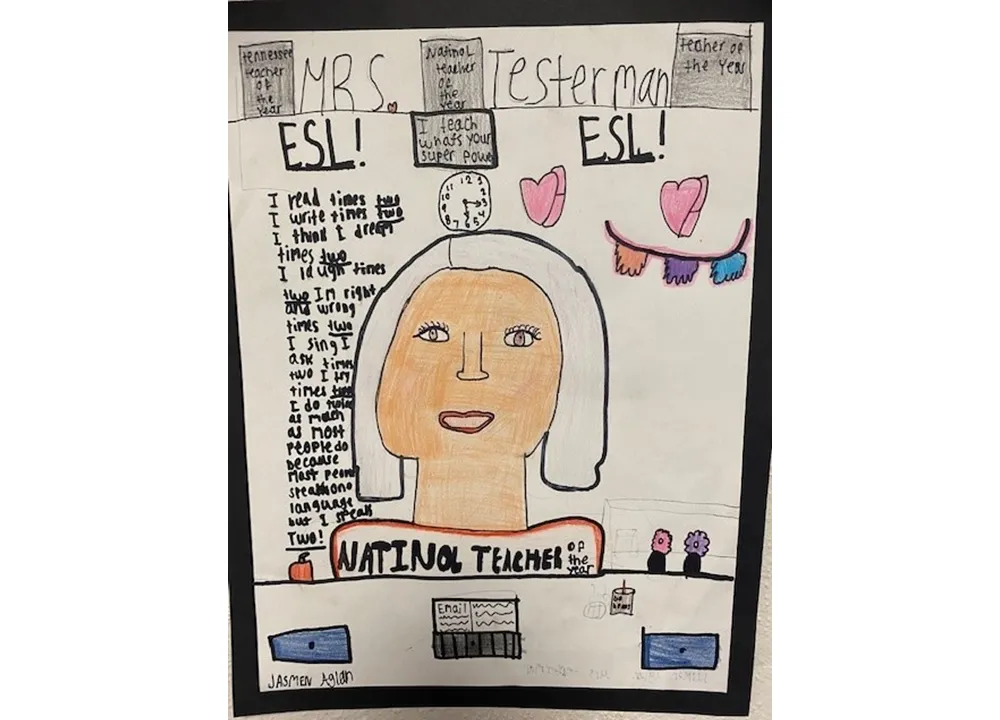 tennessee
teacher
of
the
year
MRS.
Natinol
teacher
of
the
year
Testerman
teaher of
the Year
ESL!
I teach
whats your
super powe
ESL!
11 12 1
10 2
9 3
8 4
7 6 5
I read times two
I write times two
I think I dream
times two
I laugh times
two Im right
and wrong
times two
I sing I
ask times
two I try
times two
I do twice
as much
as most
People do
because
Most peopl
speak one
language
but I speak
Two!
NATINOL TEACHER of
the
year
Email
JASMEN Aglan